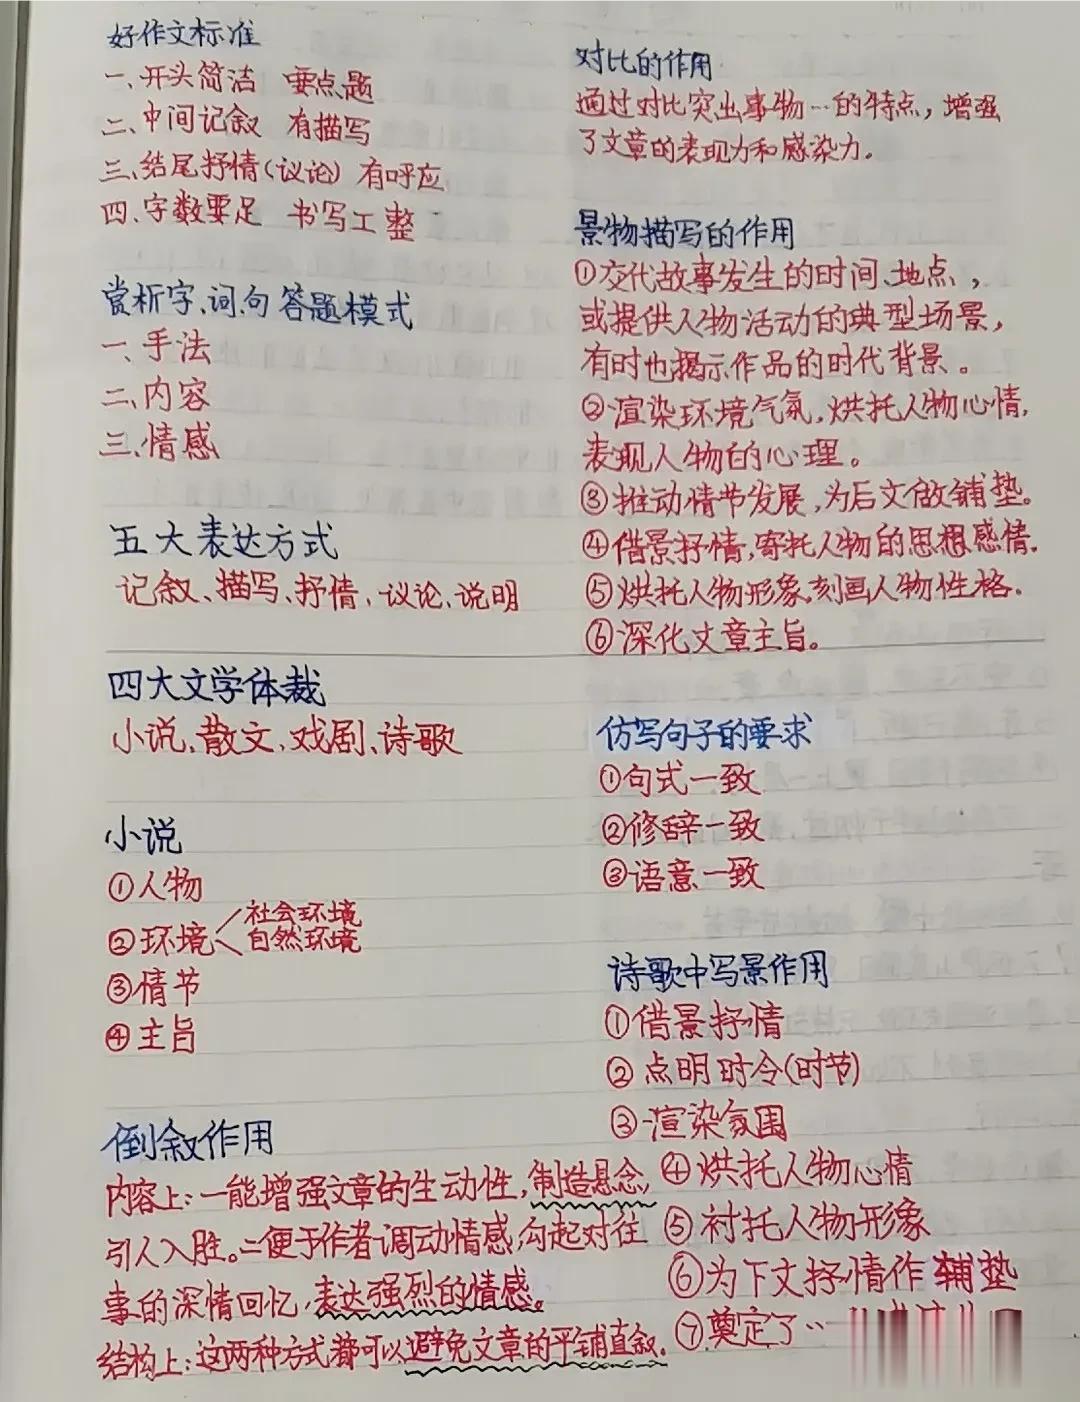 好作文标准
一、开头简洁 要点题
二、中间记叙 有描写
三、结尾抒情(议论) 有呼应
四、字数要足 书写工整
赏析字、词、句 答题模式
一、手法
二、内容
三、情感
五大表达方式
记叙、描写、抒情、议论、说明
四大文学体裁
小说、散文、戏剧、诗歌
小说
①人物
②环境
社会环境
自然环境
③情节
④主旨
倒叙作用
内容上:一能增强文章的生动性,制造悬念,
引人入胜。二便于作者调动情感,勾起对往
事的深情回忆,表达强烈的情感。
结构上:这两种方式都可以避免文章的平铺直叙。
对比的作用
通过对比突出事物…的特点,增强
了文章的表现力和感染力。
景物描写的作用
①交代故事发生的时间、地点,
或提供人物活动的典型场景,
有时也揭示作品的时代背景。
②渲染环境气氛,烘托人物心情,
表现人物的心理。
③推动情节发展,为后文做铺垫。
④借景抒情,寄托人物的思想感情.
⑤烘托人物形象,刻画人物性格.
⑥深化文章主旨。
仿写句子的要求
①句式一致
②修辞一致
③语意一致
诗歌中写景作用
①借景抒情
②点明时令(时节)
③渲染氛围
④烘托人物心情
⑤衬托人物形象
⑥为下文抒情作铺垫
⑦奠定了…